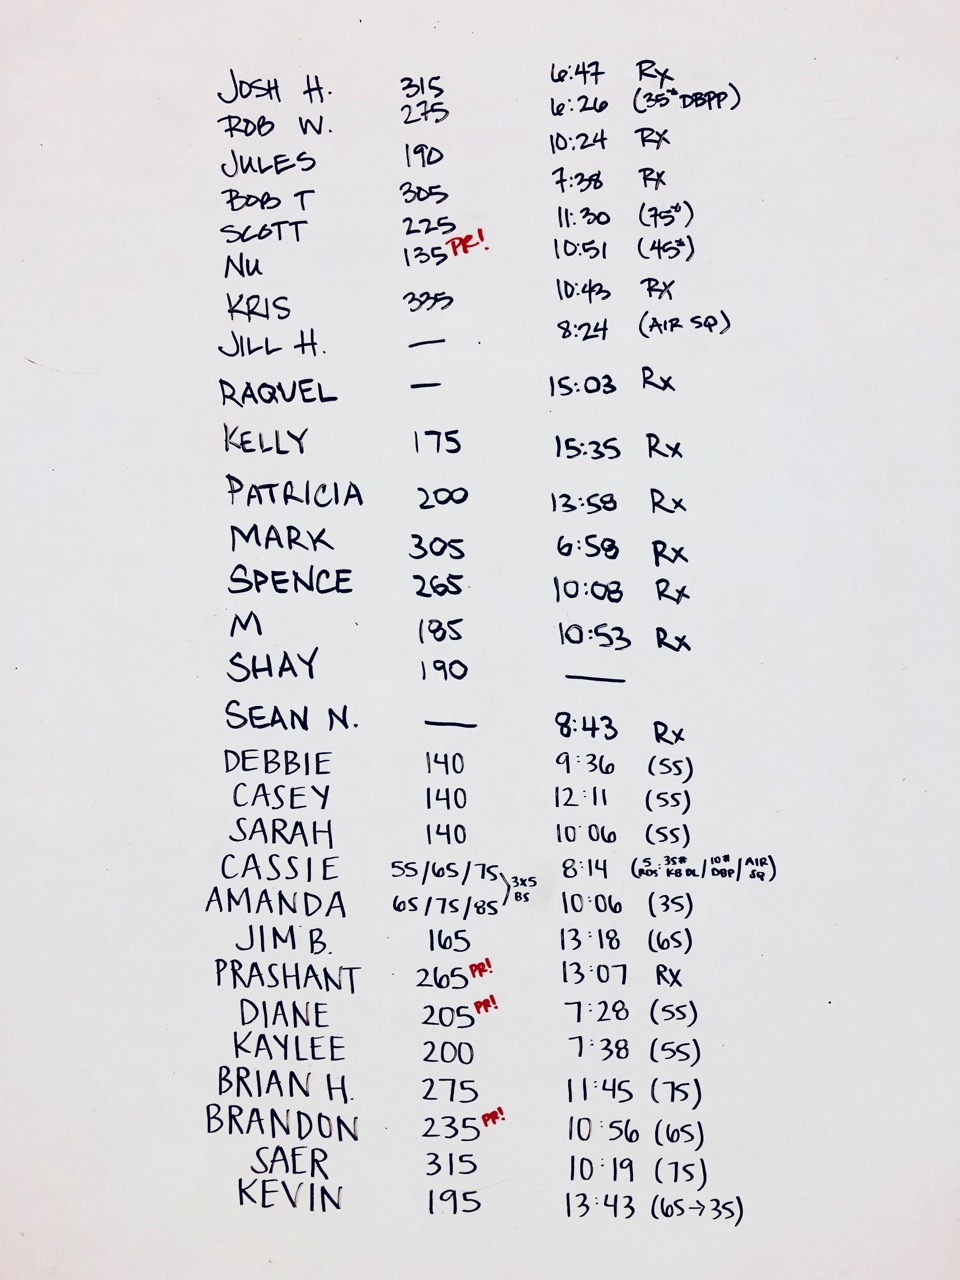 JOSH H. 315 6:47 Rx
ROB W. 275 6:26 (35# DBPP)
JULES 190 10:24 Rx
BOB T 305 7:38 Rx
SCOTT 225 11:30 (75#)
NU 135 PR! 10:51 (45#)
KRIS 335 10:43 Rx
JILL H. — 8:24 (AIR SQ)
RAQUEL — 15:03 Rx
KELLY 175 15:35 Rx
PATRICIA 200 13:58 Rx
MARK 305 6:58 Rx
SPENCE 265 10:08 Rx
M 185 10:53 Rx
SHAY 190 —
SEAN N. — 8:43 Rx
DEBBIE 140 9:36 (55)
CASEY 140 12:11 (55)
SARAH 140 10:06 (55)
CASSIE 55/65/75 3x5 BS 8:14 (5 RDS: 35# KB DL/10# DBP/AIR SQ)
AMANDA 65/75/85 10:06 (35)
JIM B. 165 13:18 (65)
PRASHANT 265 PR! 13:07 RX
DIANE 205 PR! 7:28 (55)
KAYLEE 200 7:38 (55)
BRIAN H. 275 11:45 (75)
BRANDON 235 PR! 10:56 (65)
SAER 315 10:19 (75)
KEVIN 195 13:43 (65→35)